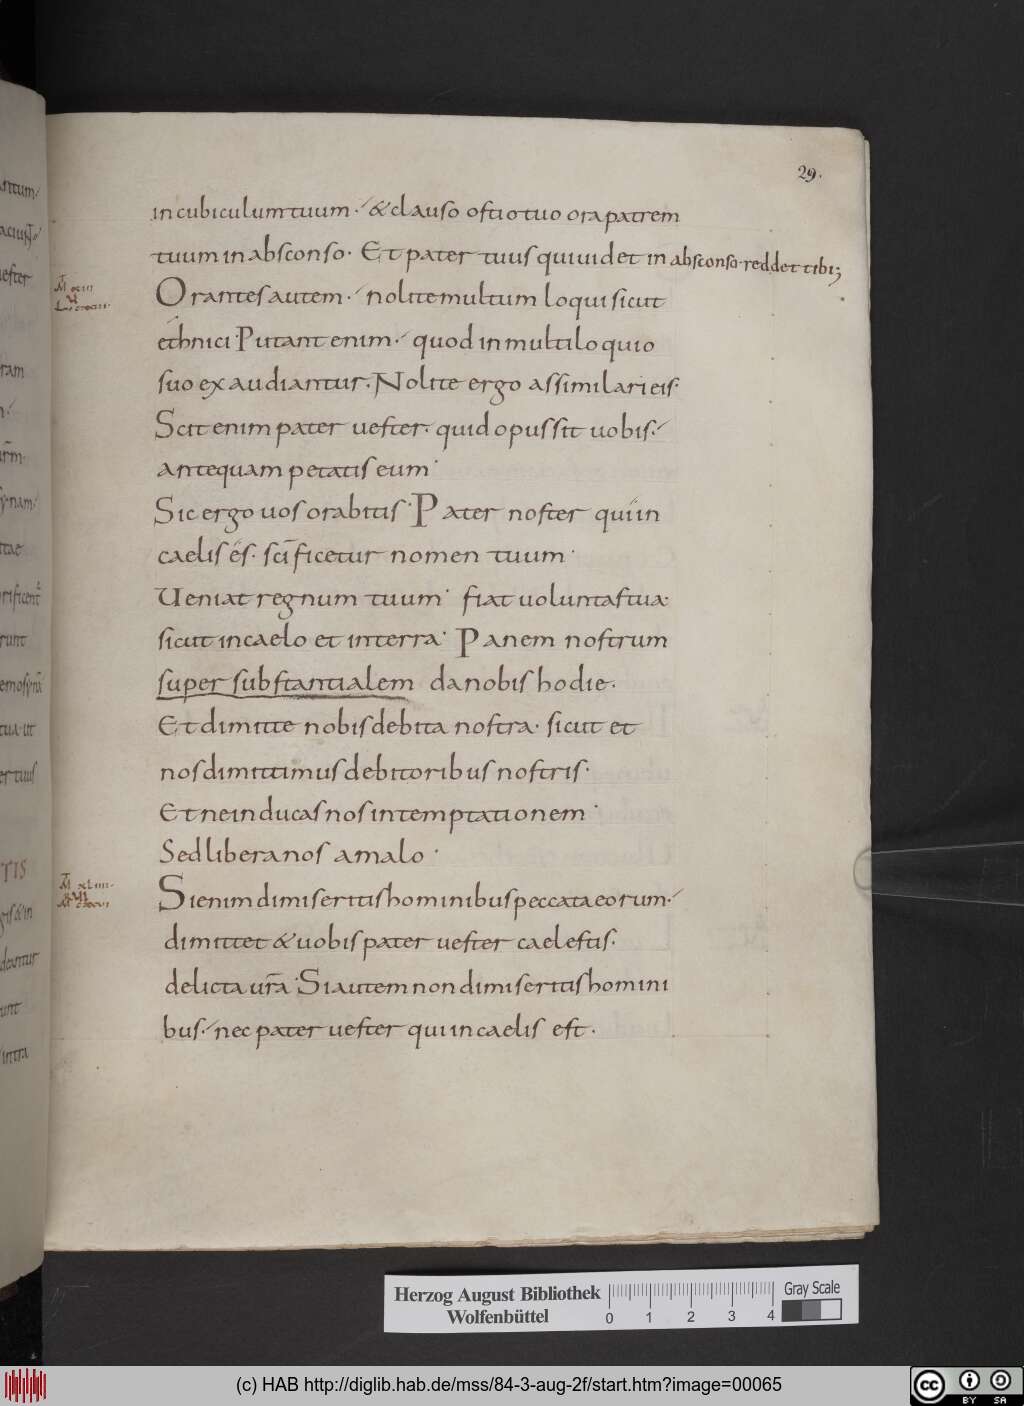 29.
in cubiculum tuum. & clauso ostio tuo ora patrem
tuum in absconso. Et pater tuus qui uidet in absconso reddet tibi;
Orantes autem. nolite multum loqui sicut
ethnici Putant enim. quod in multiloquio
suo exaudiantur. Nolite ergo assimilari eis.
Scit enim pater uester. quid opus sit uobis.
antequam petatis eum.
Sic ergo uos orabitis. Pater noster qui in
caelis es. scificetur nomen tuum.
Ueniat regnum tuum. fiat uoluntas tua.
sicut in caelo et in terra. Panem nostrum
super substantialem da nobis hodie.
Et dimitte nobis debita nostra. sicut et
nos dimittimus debitoribus nostris.
Et ne inducas nos in temptationem.
Sed libera nos a malo.
Si enim dimiseritis hominibus peccata eorum.
dimittet & uobis pater uester caelestis.
delicta ura. Si autem non dimiseritis homini
bus. nec pater uester qui in caelis est.
Herzog August Bibliothek
Wolfenbüttel
0 1 2 3 4
Gray Scale
(c) HAB http://diglib.hab.de/mss/84-3-aug-2f/start.htm?image=00065
cc BY SA